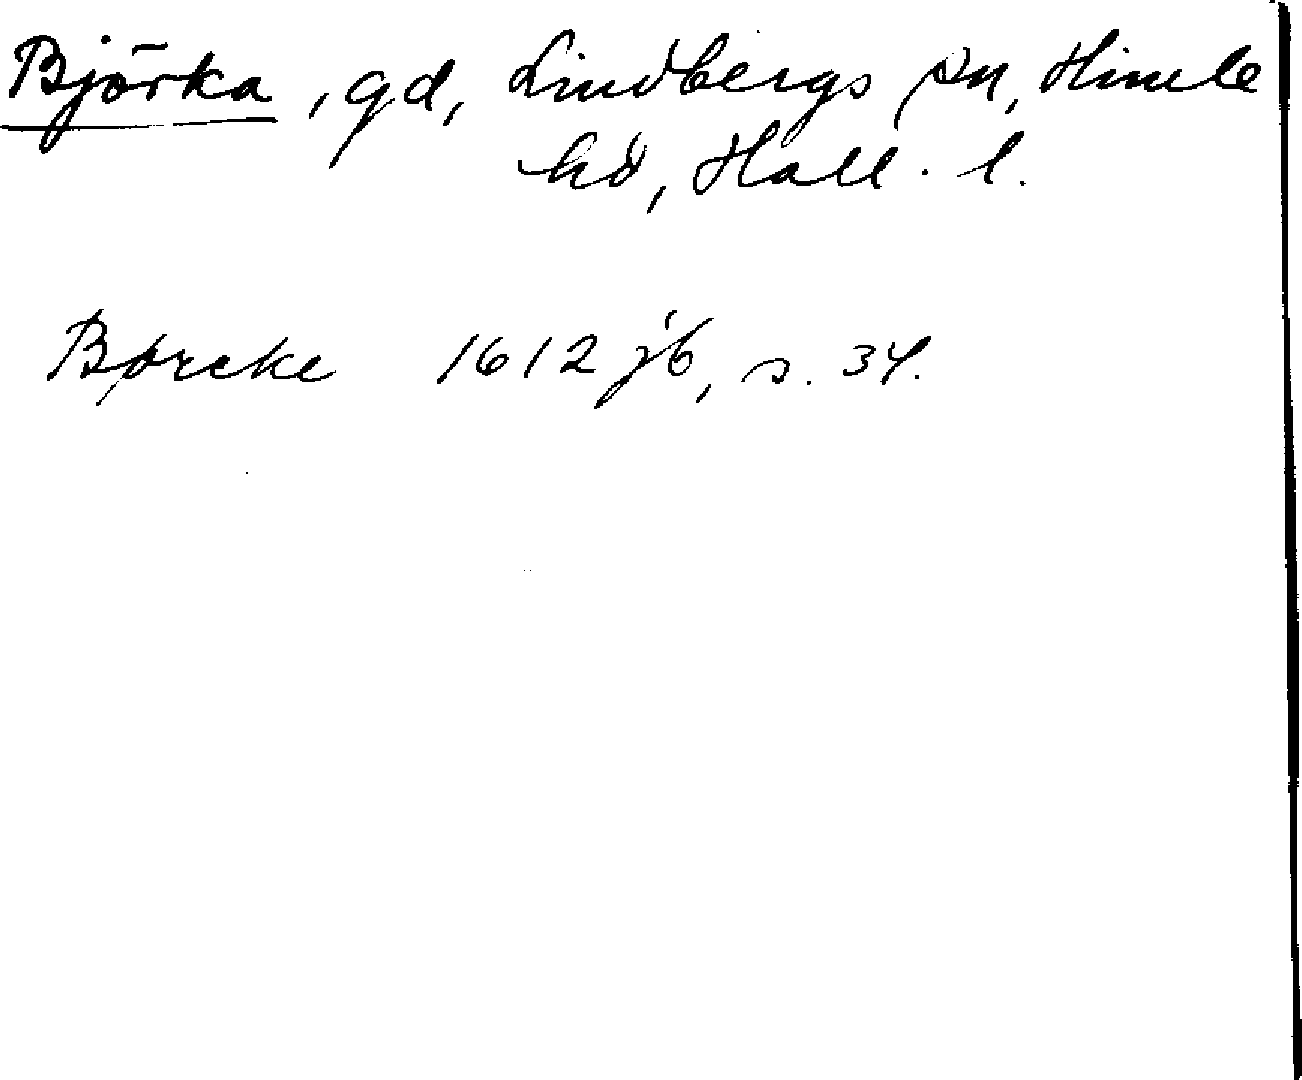 Björka, gd, Lindbergs sn, Himle
hd, Hall. l.
Børcke 1612 jb, s. 34.